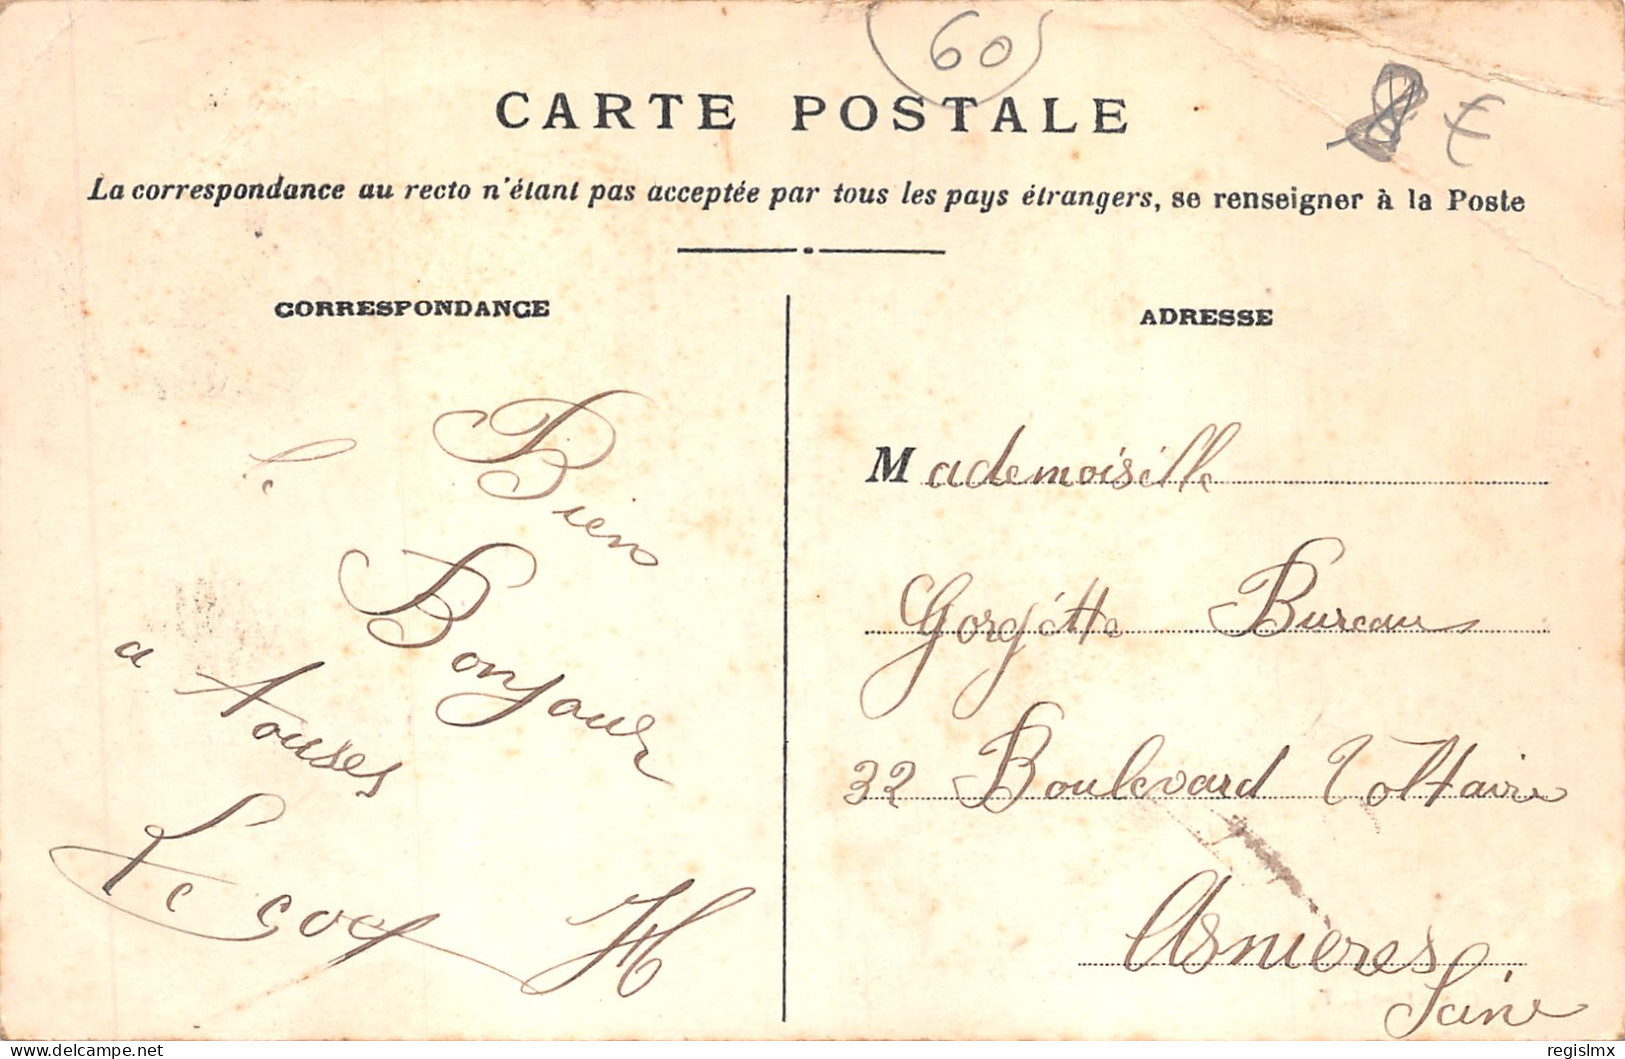 60
CARTE POSTALE
8 €
La correspondance au recto n'étant pas acceptée par tous les pays étrangers, se renseigner à la Poste
CORRESPONDANCE
le Bien
Bonjour
a touses
Lecocq H
ADRESSE
Mademoiselle
Gorgétte Bureau
32 Boulevard Voltaire
Asnieres
Seine
regislmx